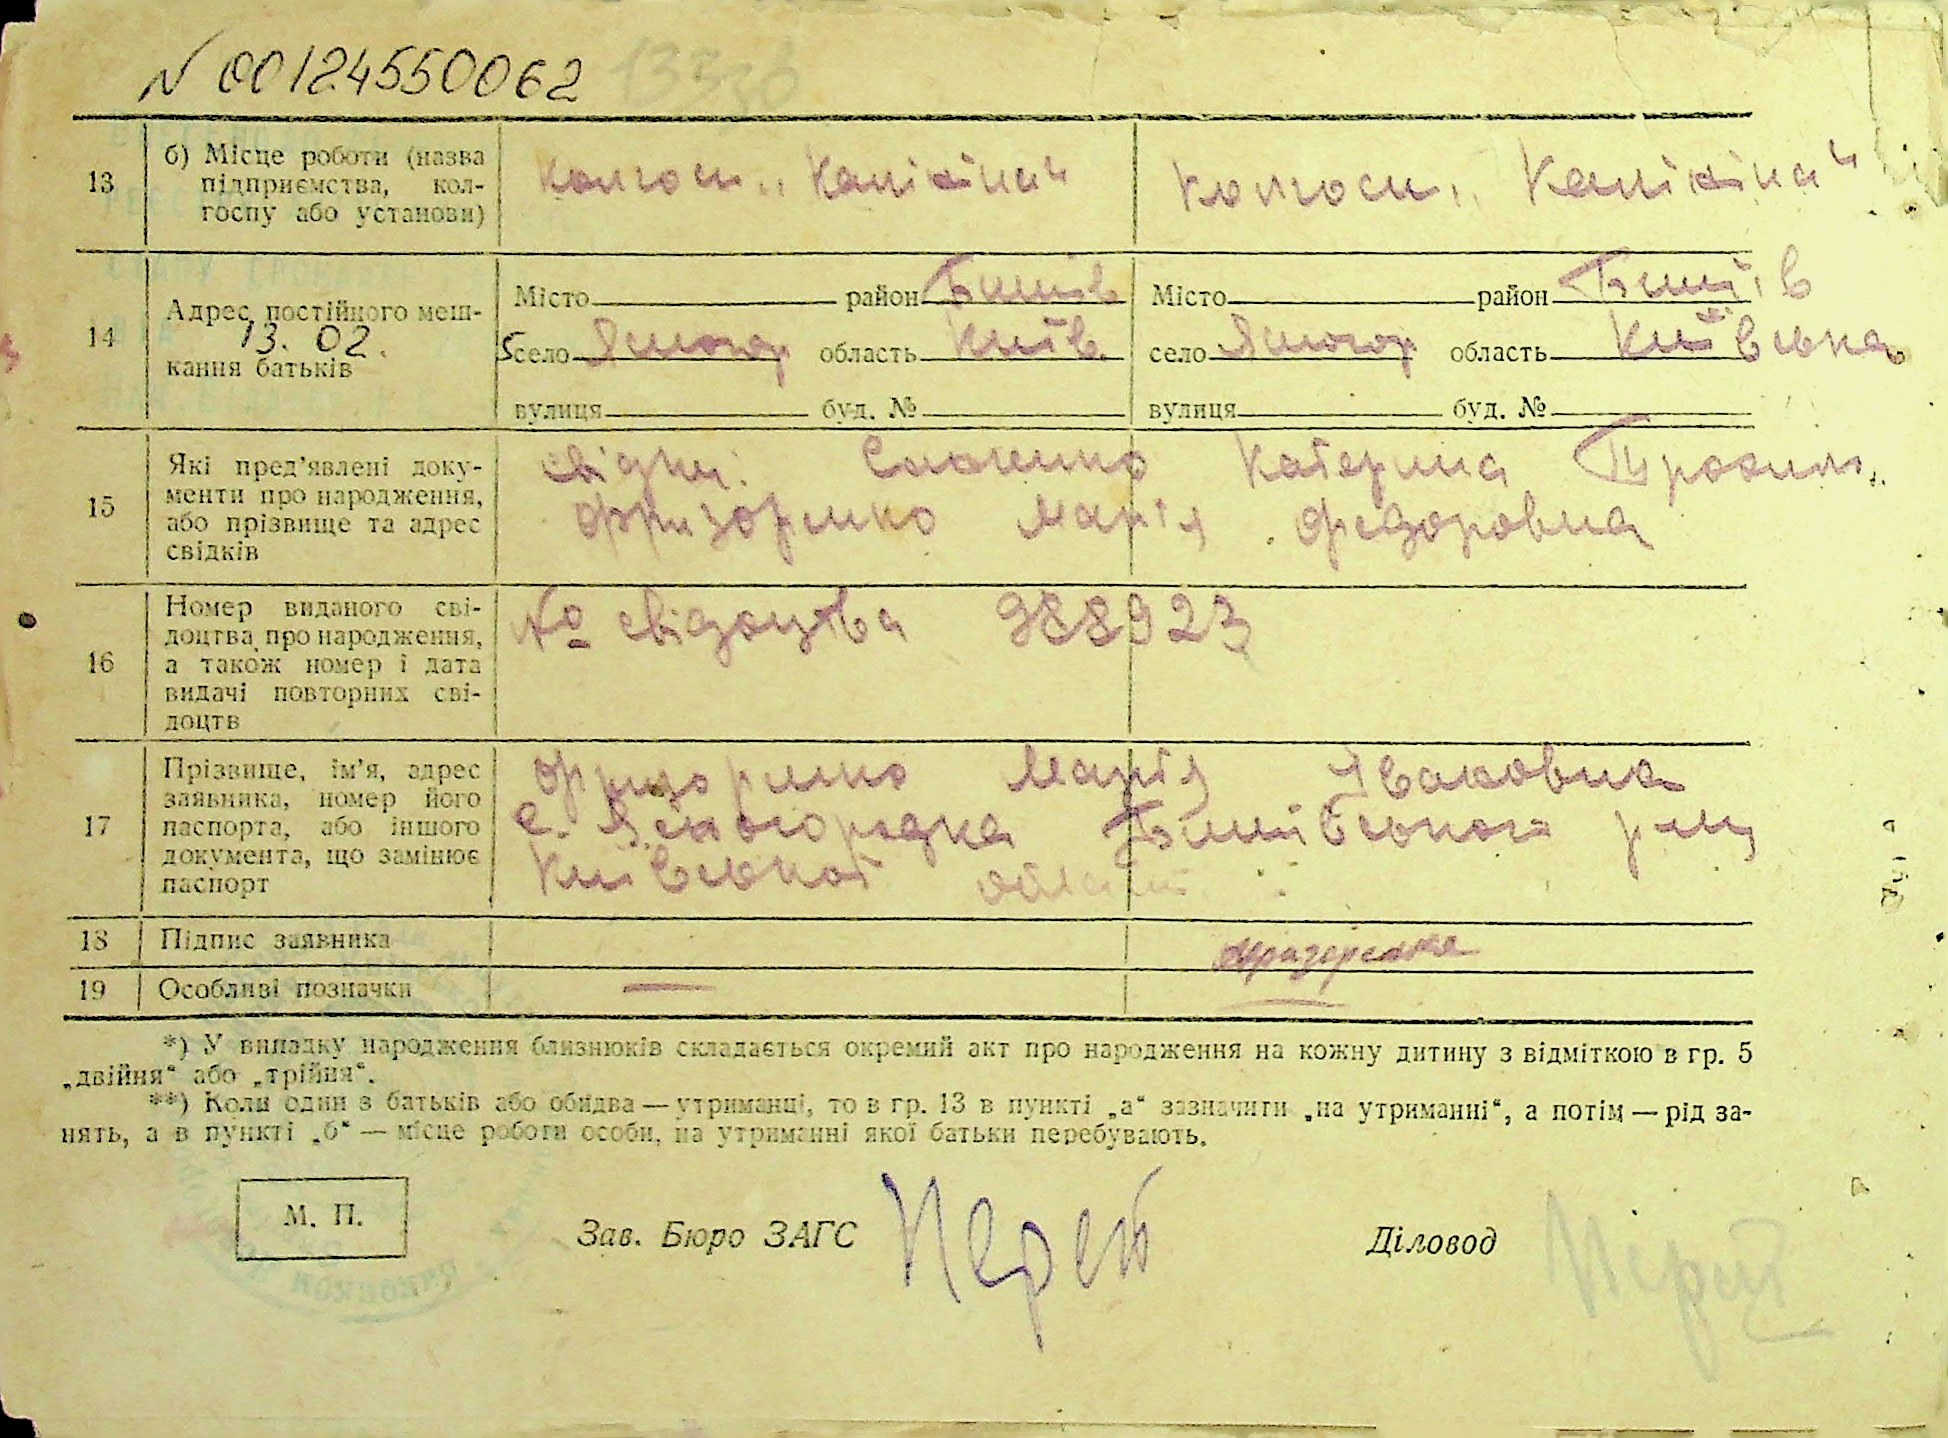 N 00124550062
13
б) Місце роботи (назва
підприємства, кол-
госпу або установи)
колгосп „Калініна“
колгосп „Калініна“
14
Адрес постійного меш-
13.02.
кання батьків
Місто район Бишів
село Ясногор область Київ
вулиця буд. №
Місто район Бишів
село Ясногор область Київська
вулиця буд. №
15
Які пред'явлені доку-
менти про народження,
або прізвище та адрес
свідків
свідки: Катерина
Марія Федоровна
16
Номер виданого сві-
доцтва про народження,
а також номер і дата
видачі повторних сві-
доцтв
№ свідоцтва 988923
17
Прізвище, ім'я, адрес
заявника, номер його
паспорта, або іншого
документа, що замінює
паспорт
Марія
с. Ясногородка Бишівського р-ну
Київської області
18
Підпис заявника
19
Особливі позначки
*) У випадку народження близнюків складається окремий акт про народження на кожну дитину з відміткою в гр. 5
„двійня“ або „трійня“.
**) Коли один з батьків або обидва — утриманці, то в гр. 13 в пункті „а“ зазначити „на утриманні“, а потім — рід за-
нять, а в пункті „б“ — місце роботи особи, на утриманні якої батьки перебувають.
М. П.
Зав. Бюро ЗАГС
Діловод